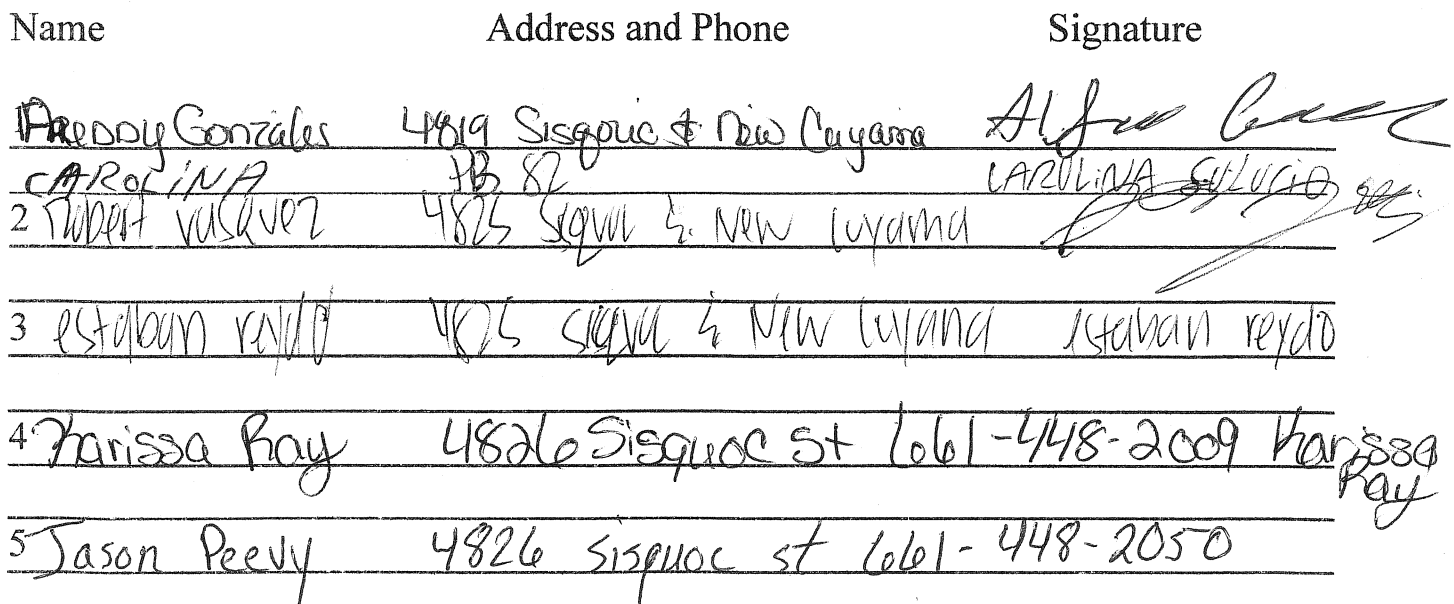 Name Address and Phone Signature
1 Freddy Gonzales 4819 Sisqouc & New Cuyama
CAROLINA PB 82 CAROLINA
2 Robert vasquez 4825 & New Cuyama
3 estaban reydo 4825 & New Cuyana estaban reydo
4 Karissa Ray 4826 Sisquoc St 661-448-2009 Karissa
Ray
5 Jason Peevy 4826 sisquoc st 661-448-2050